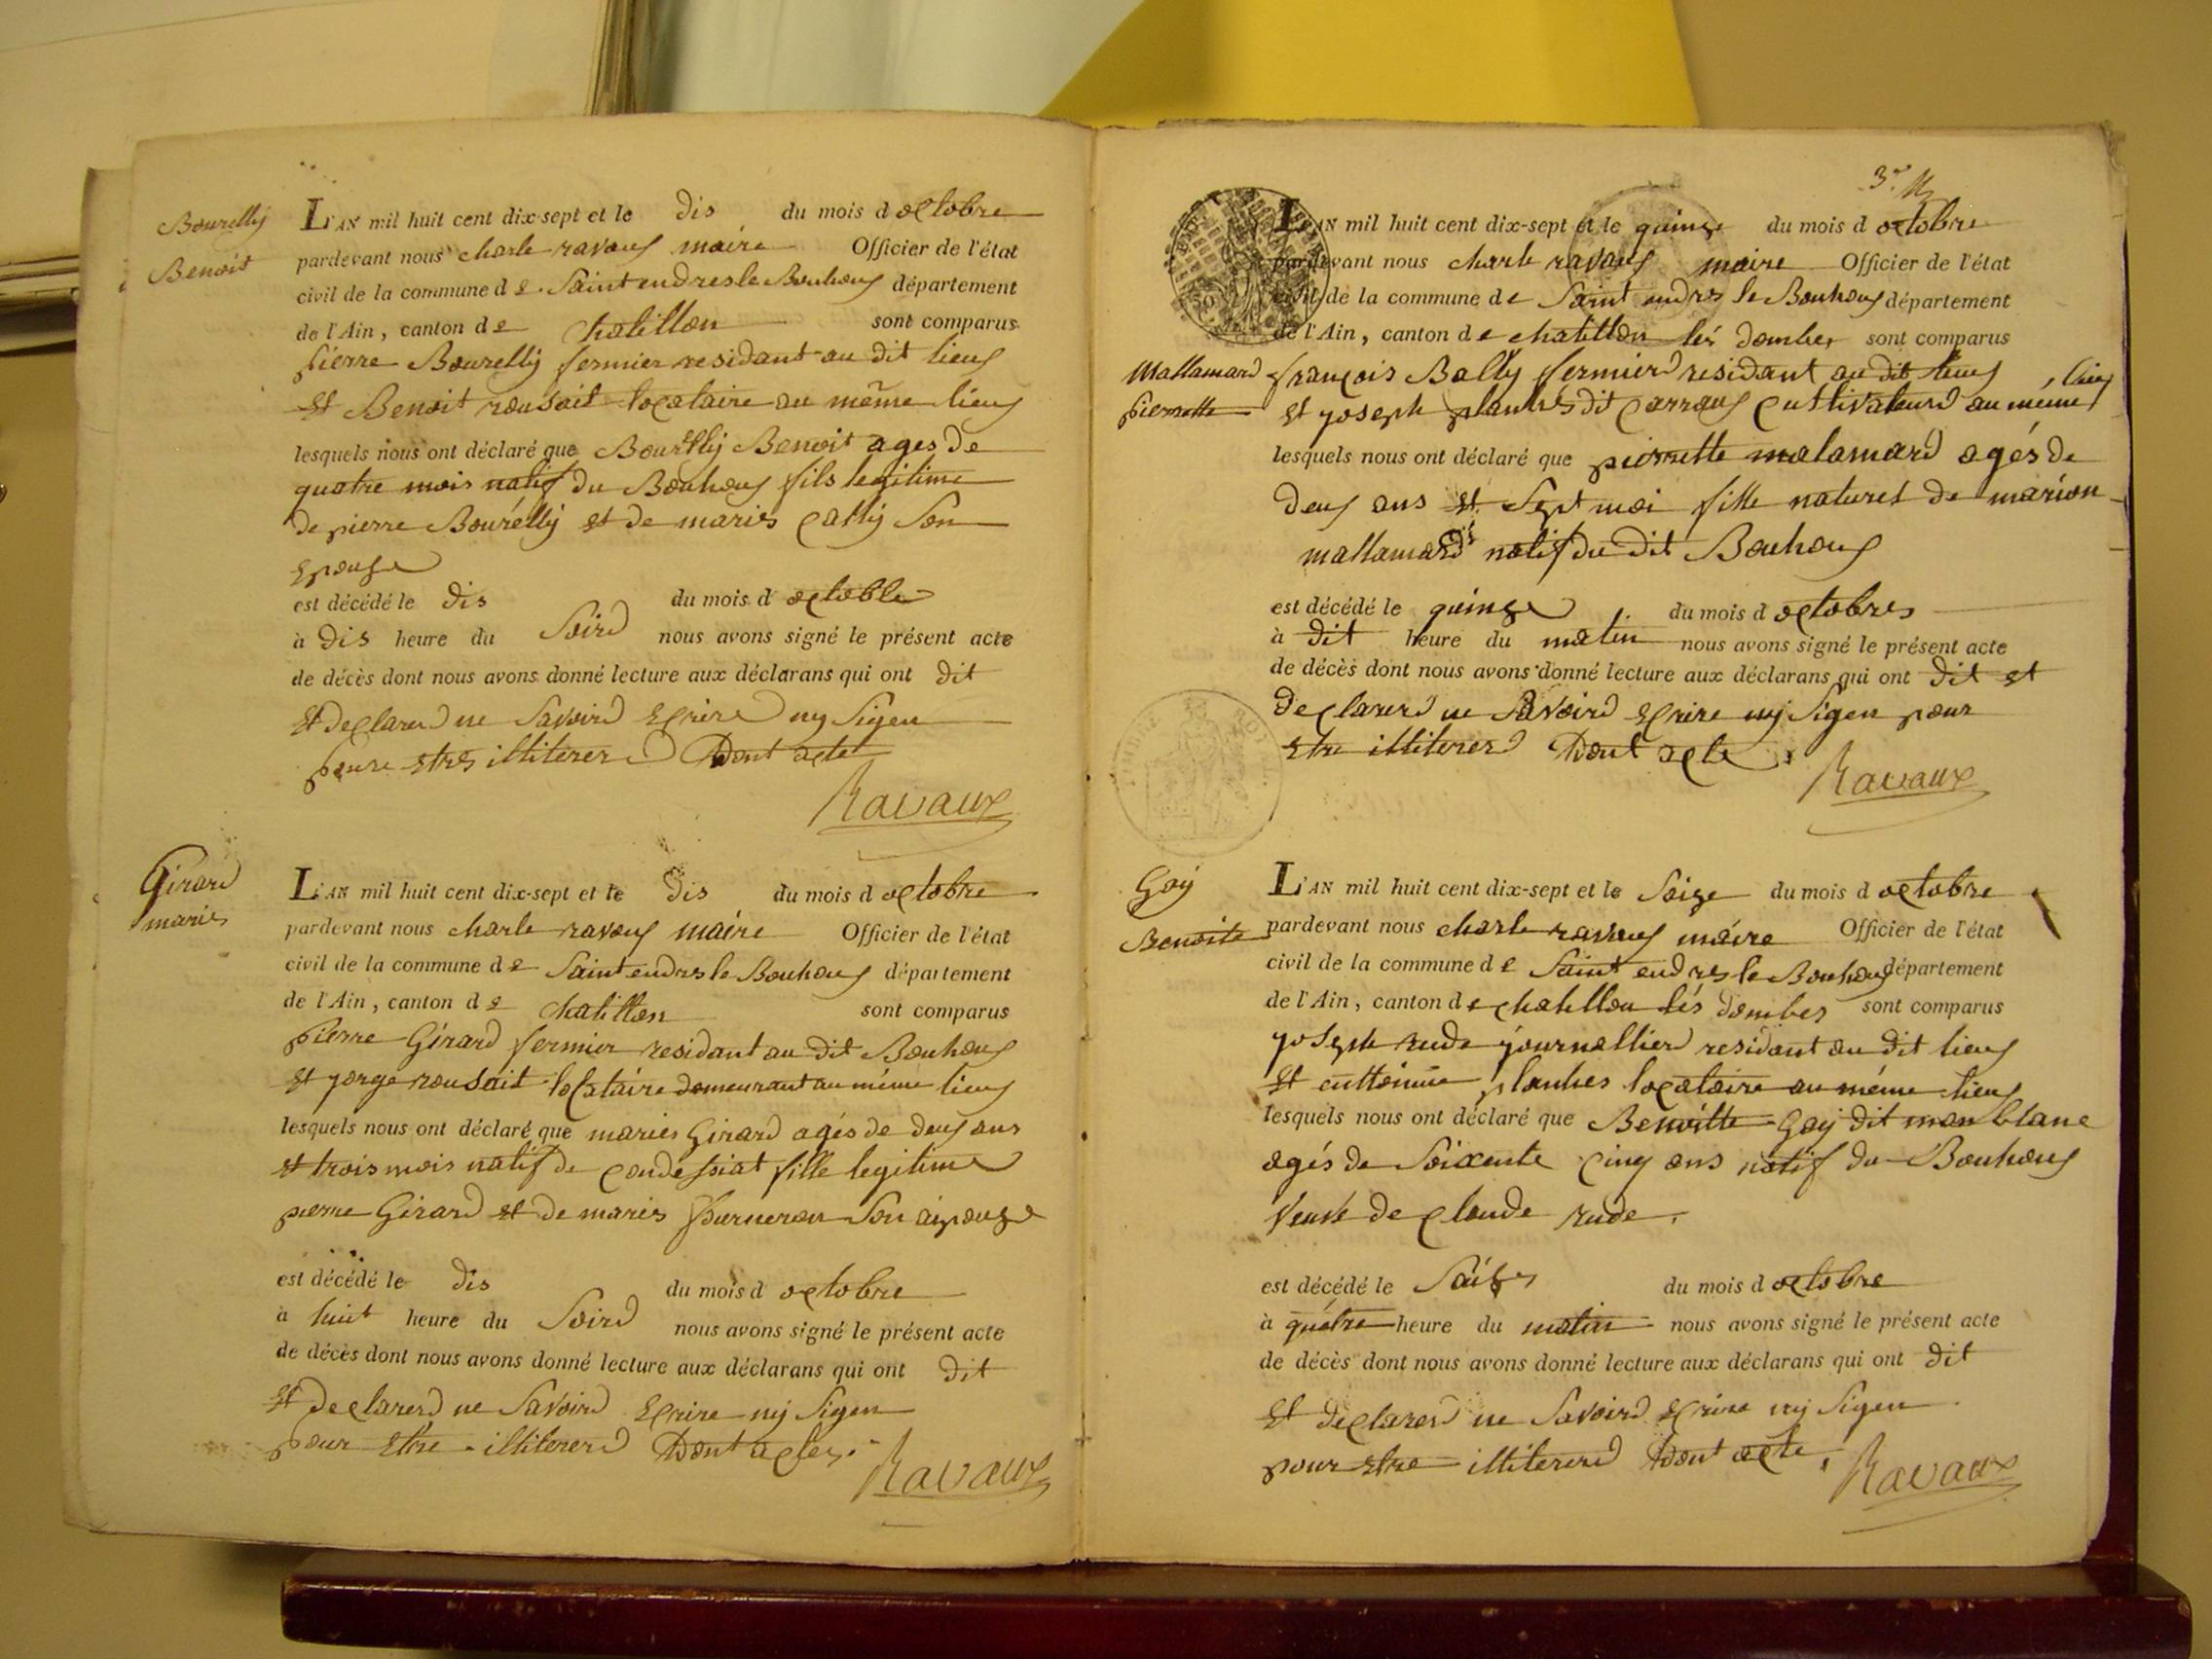 Bourelly
Benoit
L'AN mil huit cent dix-sept et le dis du mois d octobre
pardevant nous charle ravaux maire Officier de l'état
civil de la commune de Saint andres le Bouhoux département
de l'Ain, canton de chatillon sont comparus
pierre Bourelly fermier residant au dit lieux
et Benoit rousait locataire au même lieux
lesquels nous ont déclaré que Bourelly Benoit ages de
quatre mois natif du Bouhoux fils legitime
de pierre Bourelly et de maries Pally Son
epouse
est décédé le dis du mois d octoble
à dis heure du Soird nous avons signé le présent acte
de décès dont nous avons donné lecture aux déclarans qui ont dit
et declarerd ne Savoird ecrire ny Sigen
poure etres illiterer Dont acte
Ravaux
Girard
maries
L'AN mil huit cent dix-sept et le dis du mois d octobre
pardevant nous charle ravaux maire Officier de l'état
civil de la commune de Saint endres le Bouhoux département
de l'Ain, canton de chatillon sont comparus
pierre Girard fermier residant au dit Bouhoux
et jorge rousait locataire demeurant au même lieux
lesquels nous ont déclaré que maries Girard agés de deux ans
et trois mois natif de condessiat fille legitime
pierre Girard et de maries fourneron Son aipouse
est décédé le dis du mois d octobre
à huit heure du Soird nous avons signé le présent acte
de décès dont nous avons donné lecture aux déclarans qui ont dit
et declarerd ne Savoird ecrire ny Sigen
pour etre illitererd Dont actes.
Ravaux
3e
L'AN mil huit cent dix-sept et le quinze du mois d octobre
pardevant nous charle ravaux maire Officier de l'état
civil de la commune de Saint endres le Bouhoux département
de l'Ain, canton de chatillon lés dombes sont comparus
Mallamard
pierrette
françois Bally fermierd residant au dit lieux
et joseph planches dit carraux cultivateurd au meme lieux
lesquels nous ont déclaré que pierrette malamard agés de
deux ans et Sept moi fille naturel de marion
mallamard natif du dit Bouhoux
est décédé le quinze du mois d octobres
à dit heure du matin nous avons signé le présent acte
de décès dont nous avons donné lecture aux déclarans qui ont dit et
declarerd ne Savoird ecrire ny Sigen pour
etre illitererd Dont acte
Ravaux
Goy
Benoite
L'AN mil huit cent dix-sept et le Saize du mois d octobre
pardevant nous charle ravaux maire Officier de l'état
civil de la commune de Saint endres le Bouhoux département
de l'Ain, canton de chatillon lés dombes sont comparus
joseph rude journallierd residant au dit lieux
et enttoinne planches locataire au même lieux
lesquels nous ont déclaré que Benoitte Goy dit mon blanc
agés de Soixente cinq ans natif du Bouhoux
veuve de claude rude.
est décédé le Saize du mois d octobre
à quatre heure du matin nous avons signé le présent acte
de décès dont nous avons donné lecture aux déclarans qui ont dit
et declarerd ne Savoird ecrire ny Sigen
pour etre illitererd Dont acte.
Ravaux